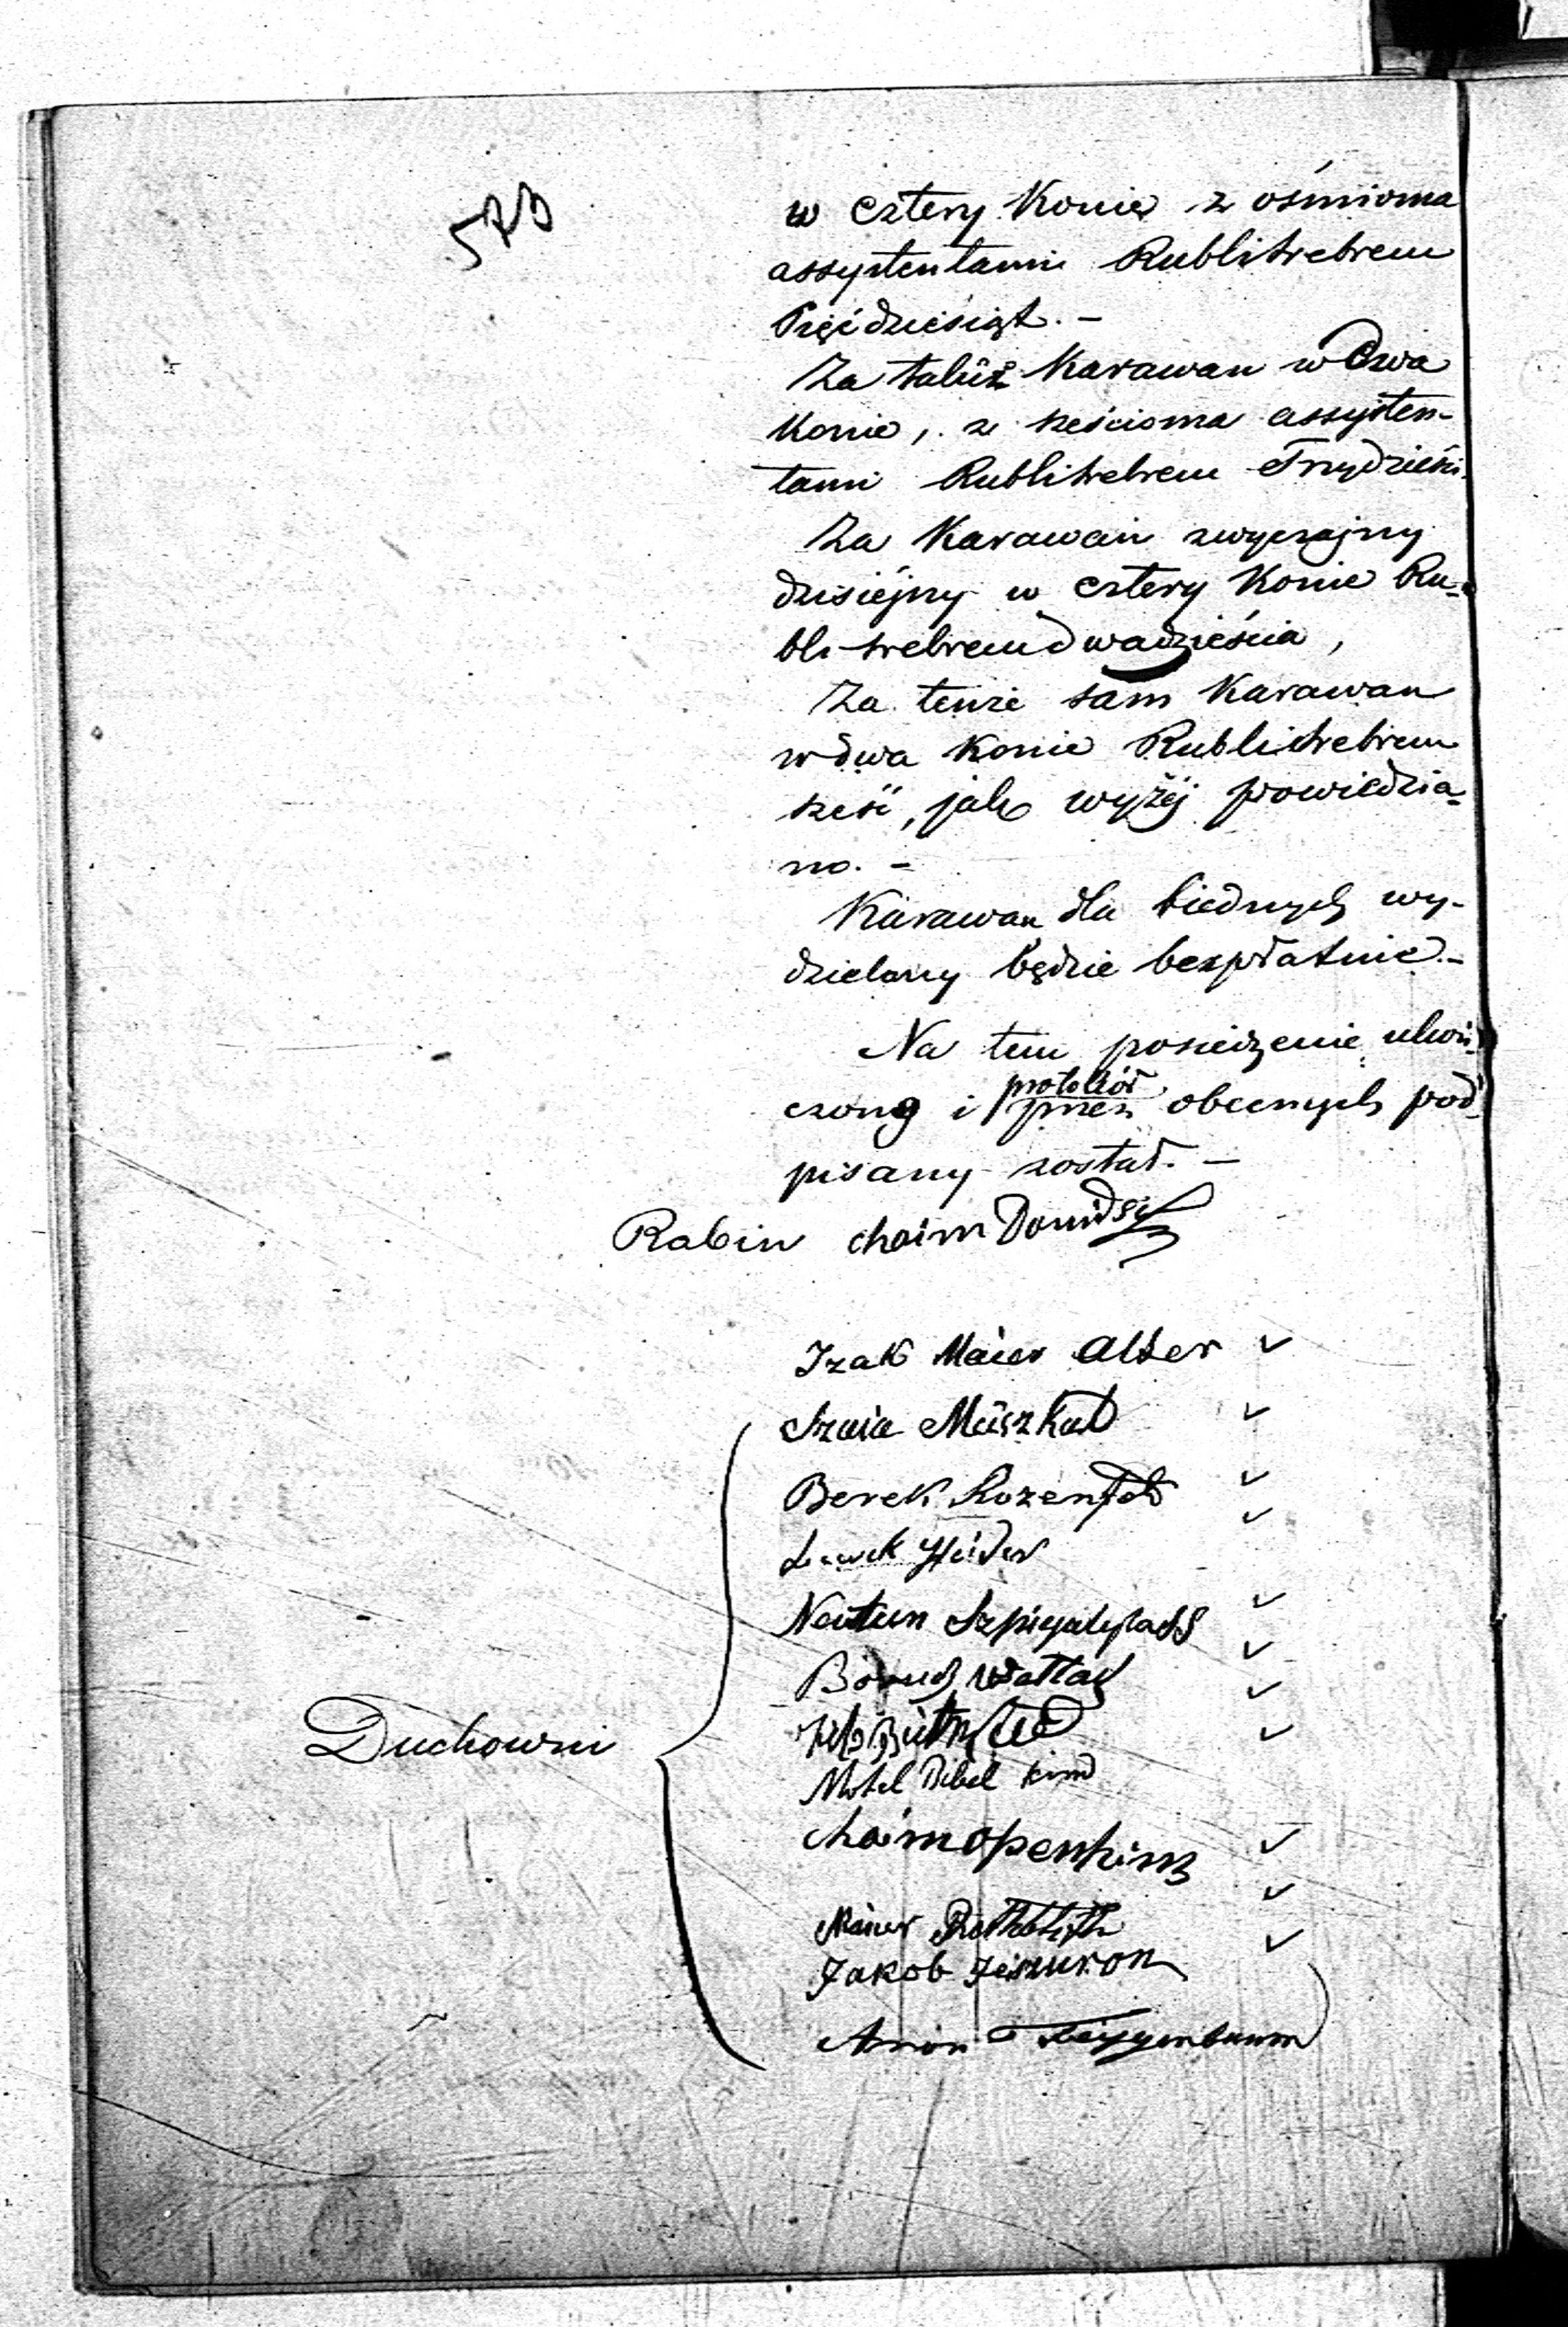 w cztery Konie z ośmioma
assystentami Rublisrebrem
Pięćdziesiąt. —
Za takiż Karawan w dwa
Konie, z sześcioma assysten-
tami Rublisrebrem Trzydzieści.
Za Karawan zwyczajny
dzisiéjny w cztery Konie Ru-
bli srebrem dwadzieścia,
Za tenże sam Karawan
w dwa Konie Rublisrebrem
sześć, jak wyżéj powiedzia-
no. —
Karawan dla biednych wy-
dzielany będzie bezpłatnie. —
Na tem posiedzenie ukoń-
czono i protokół przez obecnych pod-
pisany został. —
Rabin Chaim Dawids
Izak Maier Alter
Szaia Muszkat
Berek Rozenfeld
Nautum Szpigalglass
Boruch Wattag
Motel Dibel Kind
Chaim Openheim
Maier
Jakob Jeszuron
Duchowni
Feygenbaum